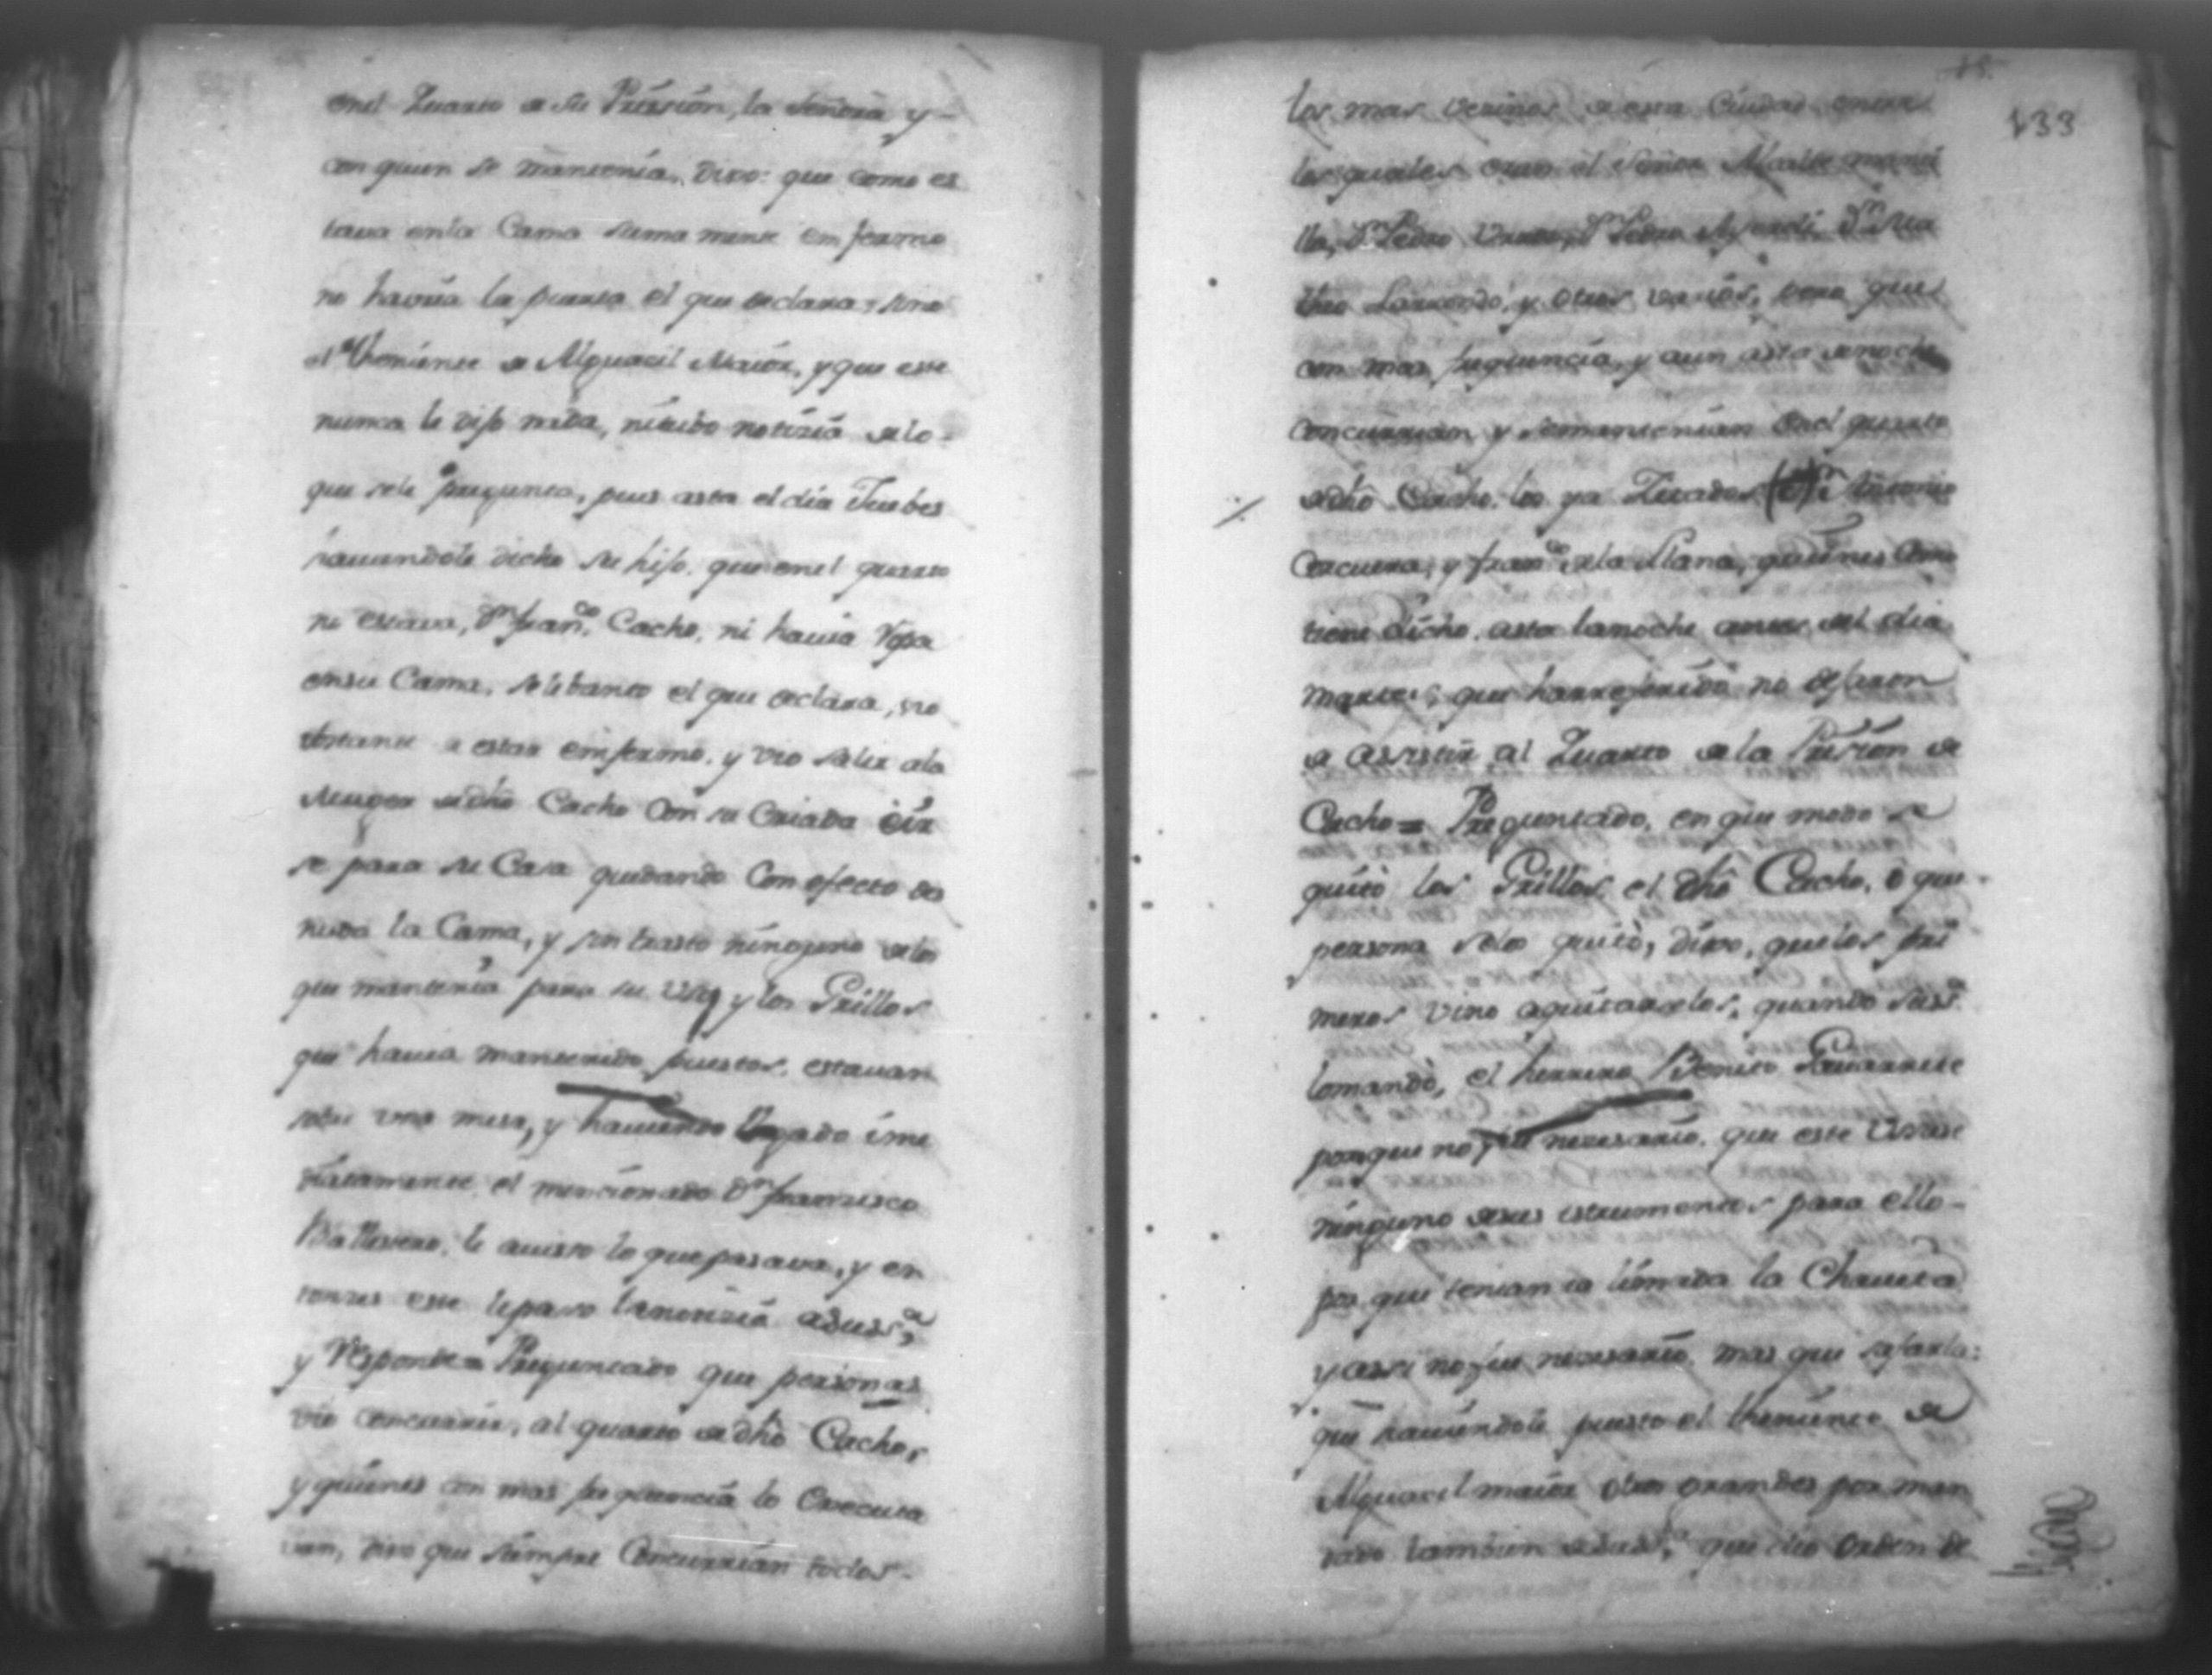 enel Quarto de su Prission, la Señora y
con quien se mantenia. Dixo: que como es
tava enla Cama suma mente enfermo
no havria la puerta el que declara, sino
el Theniente de Alguacil Maior, y que este
nunca le dijo nada, ni tubo notizia delo
que sele pregunta, pues asta el dia Juebes
haviendole dicho su hijo, que enel quarto
no estava, Dn. Franco. Cacho, ni havia Ropa
ensu Cama, se lebanto el que declara, no
obstante a estar emfermo, y vio salir ala
Muger de dho Cacho con su Criada è ir
se para su Casa quedando con efecto des
nuda la Cama, y sin trasto ninguno delos
que mantenia para su Uso, y los Grillos
que havia mantenido puestos, estavan
sobre una mesa, y haviendo llegado ime
diatamente el mencionado Dn. Francisco
Ballesero, le aviso lo que pasava, y en
tonzes este le paso la notizia a su ssa.
y Responde = Preguntado que personas
vio concurrir, al quarto de dho Cacho,
y quienes con mas frequencia lo Executa
van, dixo que siempre Concurrian todos
los mas vezinos de esta Ciudad entre
los quales eran el Señor Alcalde Mansi
lla, Dn. Pedro Dn. Pedro Dn. Ma
theo y otros varios, pero que
con mas frequencia, y aun asta de noche
concurrian y se mantenian enel quarto
de dho Cacho los ya Zitados Dn. Antonio
Corcuera, y Franco. de la Llana, quienes como
tiene dicho, asta la noche antes del dia
martes, que han referido no dejaron
de assistir al Quarto de la Prision de
Cacho = Preguntado, en que modo se
quitò los Grillos el dho Cacho, ò que
persona selos quitò, dixo, que los pri
meros vino a quitarselos, quando su ssa.
lo mandò, el herrero Benito Navarrete
porque no fue necesario, que este Usase
ninguno de sus istrumentos para ello
por que tenian ia limada la Chaveta
y assi no fue necesario mas que sacarla:
que haviendole puesto el Theniente de
Alguacil maior otros grandes por man
dado tambien de su ssa. que dio orden de
133